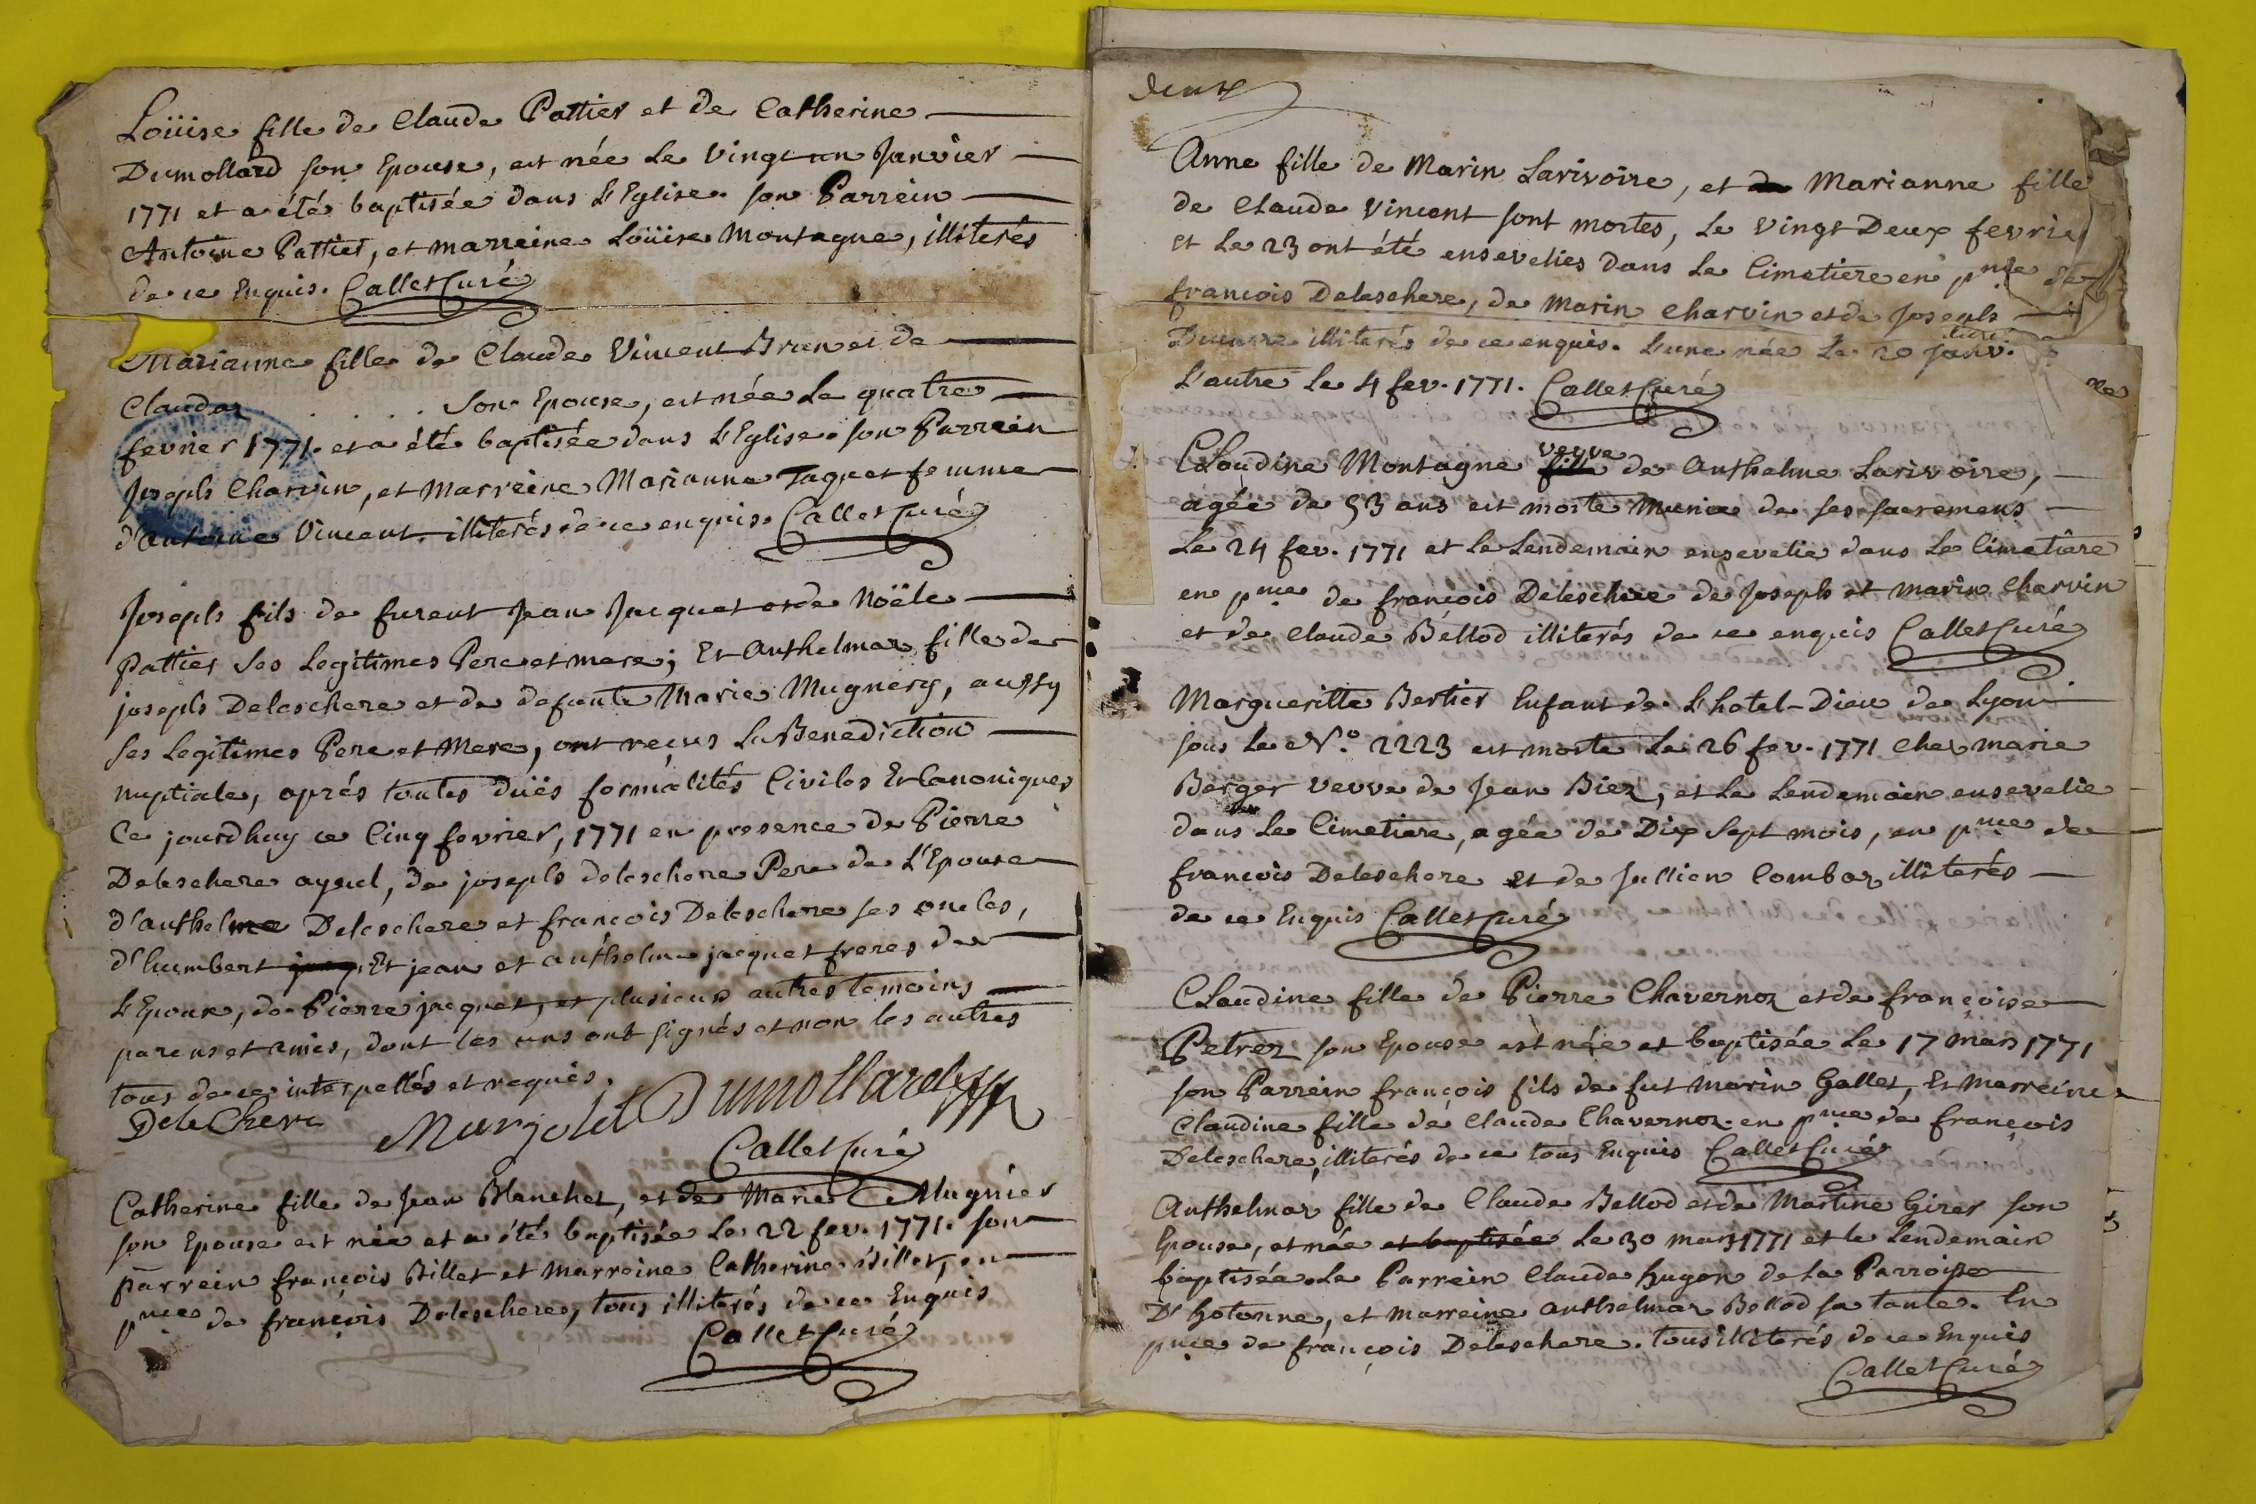 Loüise fille de Claude Pattier et de Catherine
Dumollard son Epouse, est née le vingt un Janvier
1771 et a été baptisée dans l'Eglise. son Parrein
Antoine Pattier, et marreine Loüise Montagne, illiterés
de ce Enquis. Callet Curé
Marianne fille de Claude Vincent Brun et de
Claudaz . . . . . son Epouse, est née le quatre
fevrier 1771. et a été baptisée dans l'Eglise. son Parrein
Joseph Charvin, et Marreine Marianne Taquet femme
d'Antoine Vincent illiterés de ce enquis. Callet Curé
Joseph fils de furent Jean Jacquet et de Noële
Pattier ses Legitimes Pere et mere; Et Anthelmaz fille de
joseph Deleschere et de defunte Marie Mugnery, aussy
ses Legitimes Pere et Mere, ont reçus la Benediction
nuptiale, aprés toutes düës formalités Civiles Et Canoniques
Ce jourdhuy ce Cinq fevrier, 1771 en presence de Pierre
Deleschere ayeul, de joseph deleschere Pere de L'Epouse
d'anthelme Deleschere et francois Deleschere ses oncles,
d'humbert jacq. Et jean et anthelme jacquet freres de
L'Epoux, de Pierre jacquet, et plusieurs autres temoins
parens et amis, dont les uns ont signés et non les autres
tous de ce interpellés et requis.
DeleChere Murjolet Dumollard
Callet Curé
Catherine fille de Jean Blanchet, et de Marie Mugnier
son Epouse est née et a été baptisée le 22 fev. 1771. son
parrein françois Billet et marreine Catherine Billet, en
pnce de françois Deleschere, tous illiterés de ce Enquis
Callet Curé
deux
Anne fille de Marin Larivoire, et de Marianne fille
de Claude Vincent sont mortes, le vingt Deux fevrie
et le 23 ont été ensevelies dans le Cimetiere en pnce de
francois Deleschere, de Marin Charvin et de Joseph
illiterés de ce enquis. L'une née le 20 Janv.
L'autre le 4 fev. 1771. Callet Curé
veuve
Claudine Montagne fille de Anthelme Larivoire,
agée de 53 ans est morte Munie de ses sacremens
le 24 fev. 1771 et le lendemain ensevelie dans le Cimetiere
en pnce de françois Deleschere de Joseph et marin Charvin
et de Claude Bellod illiterés de ce enquis Callet Curé
Margueritte Bertier Enfant de L'hotel-Dieu de Lyon
sous le N.o 2223 est morte le 26 fev. 1771 chez marie
Berger veuve de Jean Biez, et le lendemain ensevelie
dans le Cimetiere, agée de Dix sept mois, en pnce de
francois Deleschere et de Jullien Combaz illiterés
de ce Enquis Callet Curé
Claudine fille de Pierre Chavernoz et de françoise
Petrez son Epouse est née et baptisée le 17 mars 1771
son Parrein françois fils de fut Marin Gallet, Et Marreine
Claudine fille de Claude Chavernoz. en pnce de françois
Deleschere, illiterés de ce tous Enquis Callet Curé
Anthelmaz fille de Claude Bellod et de Martine Girer son
Epouse, est née et baptisée le 30 mars 1771 et le lendemain
baptisée. Le Parrein Claude hugon de la Parroisse
D'hotonne, et Marreine Anthelmaz Bellod sa tante. En
pnce de françois Deleschere. tous illiterés de ce Enquis
Callet Curé